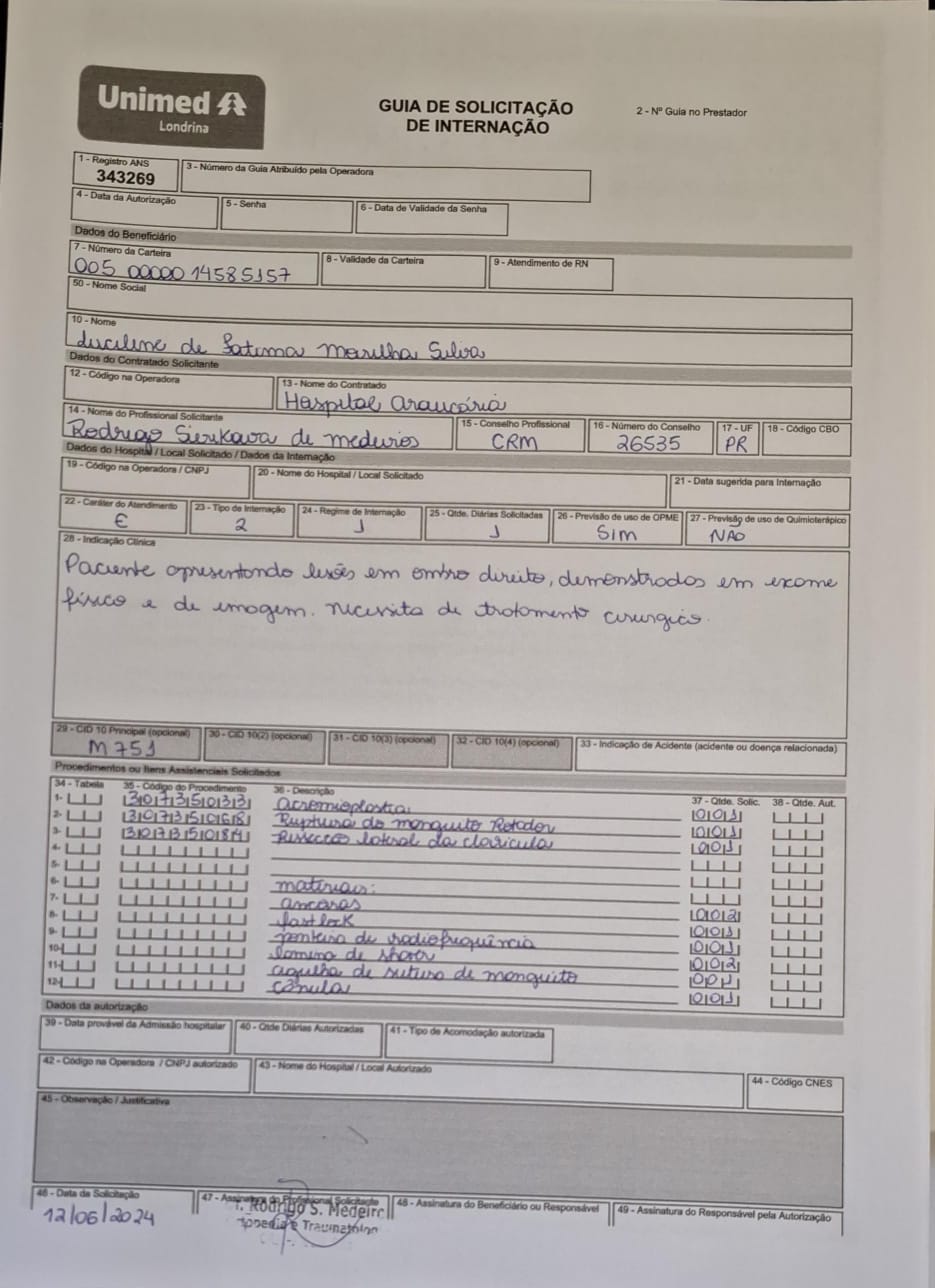 Unimed
Londrina
GUIA DE SOLICITAÇÃO
DE INTERNAÇÃO
2 - Nº Guia no Prestador
1 - Registro ANS
343269
3 - Número da Guia Atribuído pela Operadora
4 - Data da Autorização
5 - Senha
6 - Data de Validade da Senha
Dados do Beneficiário
7 - Número da Carteira
005 00000 14585157
8 - Validade da Carteira
9 - Atendimento de RN
50 - Nome Social
10 - Nome
de Fatima Silva
Dados do Contratado Solicitante
12 - Código na Operadora
13 - Nome do Contratado
Hospital Araucária
14 - Nome do Profissional Solicitante
Rodrigo de
15 - Conselho Profissional
CRM
16 - Número do Conselho
26535
17 - UF
PR
18 - Código CBO
Dados do Hospital / Local Solicitado / Dados da Internação
19 - Código na Operadora / CNPJ
20 - Nome do Hospital / Local Solicitado
21 - Data sugerida para Internação
22 - Caráter do Atendimento
E
23 - Tipo de Internação
2
24 - Regime de Internação
1
25 - Qtde. Diárias Solicitadas
1
26 - Previsão de uso de OPME
SIM
27 - Previsão de uso de Quimioterápico
NÃO
28 - Indicação Clínica
Paciente apresentando lesões em ombro direito, demonstrados em exame
físico e de imagem. necessita de tratamento cirurgico.
29 - CID 10 Principal (opcional)
M 751
30 - CID 10(2) (opcional)
31 - CID 10(3) (opcional)
32 - CID 10(4) (opcional)
33 - Indicação de Acidente (acidente ou doença relacionada)
Procedimentos ou Itens Assistenciais Solicitados
34 - Tabela
35 - Código do Procedimento
36 - Descrição
37 - Qtde. Solic.
38 - Qtde. Aut.
1- 30735033 Acromioplastia 001
2- 30735068 Ruptura do manguito Rotador 001
3- 30735084 Ressecção lateral da clavicula 001
4-
5-
6- materiais:
7- ancoras 002
8- fast lock 001
9- ponteira de radiofrequência 001
10- lamina de shaver 002
11- agulha de sutura de manguito 001
12- cânula 001
Dados da autorização
39 - Data provável da Admissão hospitalar
40 - Qtde Diárias Autorizadas
41 - Tipo de Acomodação autorizada
42 - Código na Operadora / CNPJ autorizado
43 - Nome do Hospital / Local Autorizado
44 - Código CNES
45 - Observação / Justificativa
46 - Data da Solicitação
12/06/2024
47 - Assinatura do Profissional Solicitante
Rodrigo S. Medeiro
48 - Assinatura do Beneficiário ou Responsável
49 - Assinatura do Responsável pela Autorização